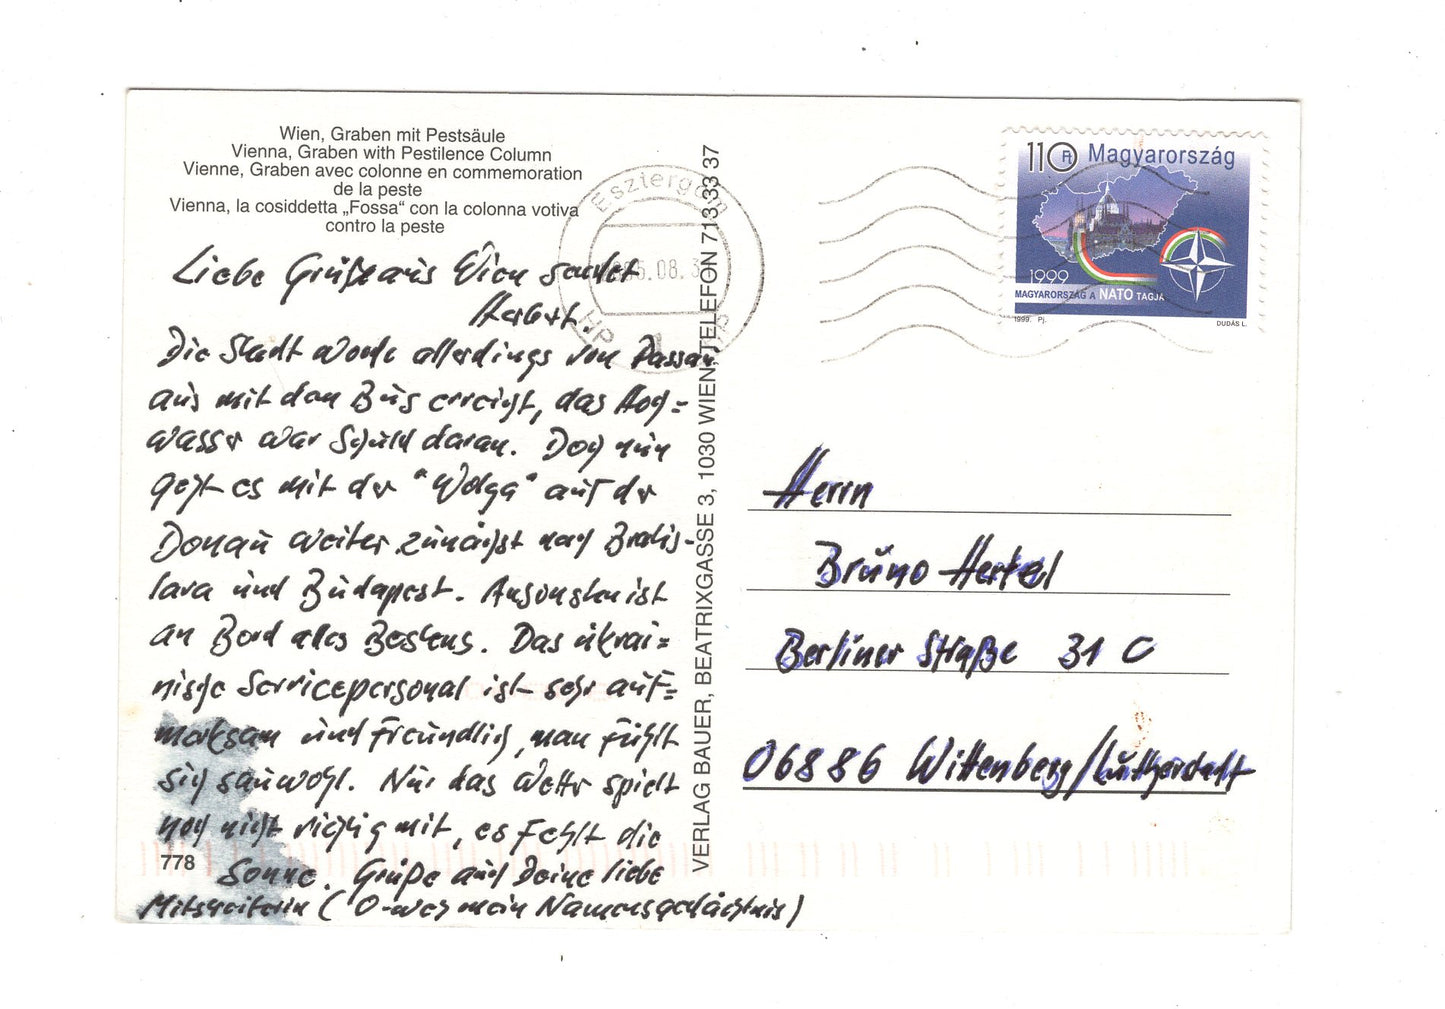 Wien, Graben mit Pestsäule
Vienna, Graben with Pestilence Column
Vienne, Graben avec colonne en commemoration
de la peste
Vienna, la cosiddetta „Fossa“ con la colonna votiva
contro la peste
Liebe Grüße aus Wien sendet
Herbert.
Die Stadt wurde allerdings von Passau
aus mit dem Bus erreicht, das Hoch=
wasser war Schuld daran. Doch nun
geht es mit der "Wolga" auf der
Donau weiter zunächst nach Bratis-
lava und Budapest. Ansonsten ist
an Bord alles Bestens. Das ukrai=
nische Servicepersonal ist sehr auf=
merksam und freundlich, man fühlt
sich sauwohl. Nur das Wetter spielt
noch nicht richtig mit, es fehlt die
Sonne. Grüße auch Deine liebe
Mitstreiterin (O-weh mein Namensgedächtnis)
778
VERLAG BAUER, BEATRIXGASSE 3, 1030 WIEN, TELEFON 713 33 37
Esztergom
08.3
HP
1
110 Ft Magyarország
1999
MAGYARORSZÁG A NATO TAGJA
1999. Pj.
DUDÁS L.
Herrn
Bruno Hertel
Berliner Straße 31 C
06886 Wittenberg/Lutherstadt